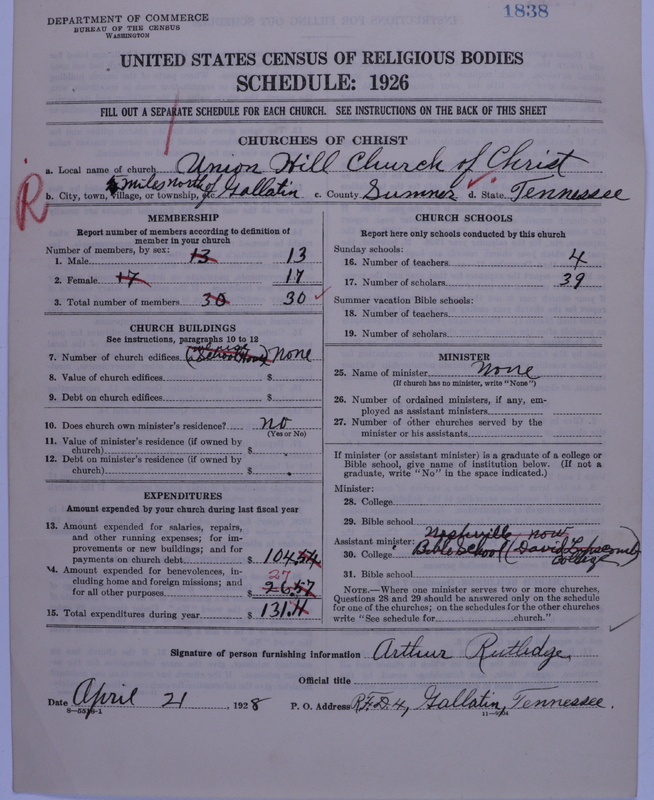 DEPARTMENT OF COMMERCE
BUREAU OF THE CENSUS
WASHINGTON
1838
UNITED STATES CENSUS OF RELIGIOUS BODIES
SCHEDULE: 1926
FILL OUT A SEPARATE SCHEDULE FOR EACH CHURCH. SEE INSTRUCTIONS ON THE BACK OF THIS SHEET
CHURCHES OF CHRIST
a. Local name of church Union Hill Church of Christ
R b. City, town, village, or township, etc. 4 miles north of Gallatin c. County Sumner d. State Tennessee
MEMBERSHIP
Report number of members according to definition of
member in your church
Number of members, by sex:
1. Male 13 13
2. Female 17 17
3. Total number of members 30 30
CHURCH BUILDINGS
See instructions, paragraphs 10 to 12
7. Number of church edifices (we use School House) None
8. Value of church edifices $
9. Debt on church edifices $
10. Does church own minister's residence? no
(Yes or No)
11. Value of minister's residence (if owned by
church) $
12. Debt on minister's residence (if owned by
church) $
EXPENDITURES
Amount expended by your church during last fiscal year
13. Amount expended for salaries, repairs,
and other running expenses; for im-
provements or new buildings; and for
payments on church debt $ 104.54
14. Amount expended for benevolences, in-
cluding home and foreign missions; and
for all other purposes $ 27 26.57
15. Total expenditures during year $ 131.11
CHURCH SCHOOLS
Report here only schools conducted by this church
Sunday schools:
16. Number of teachers 4
17. Number of scholars 39
Summer vacation Bible schools:
18. Number of teachers
19. Number of scholars
MINISTER
25. Name of minister None
(If church has no minister, write "None")
26. Number of ordained ministers, if any, em-
ployed as assistant ministers
27. Number of other churches served by the
minister or his assistants
If minister (or assistant minister) is a graduate of a college or
Bible school, give name of institution below. (If not a
graduate, write "No" in the space indicated.)
Minister:
28. College
29. Bible school
Assistant minister: Nashville now
30. College Bible School (David Lipscomb College)
31. Bible school
NOTE.—Where one minister serves two or more churches,
Questions 28 and 29 should be answered only on the schedule
for one of the churches; on the schedules for the other churches
write "See schedule for church."
Signature of person furnishing information Arthur Rutledge
Official title
Date April 21 1928 P. O. Address R.F.D. 4, Gallatin, Tennessee.